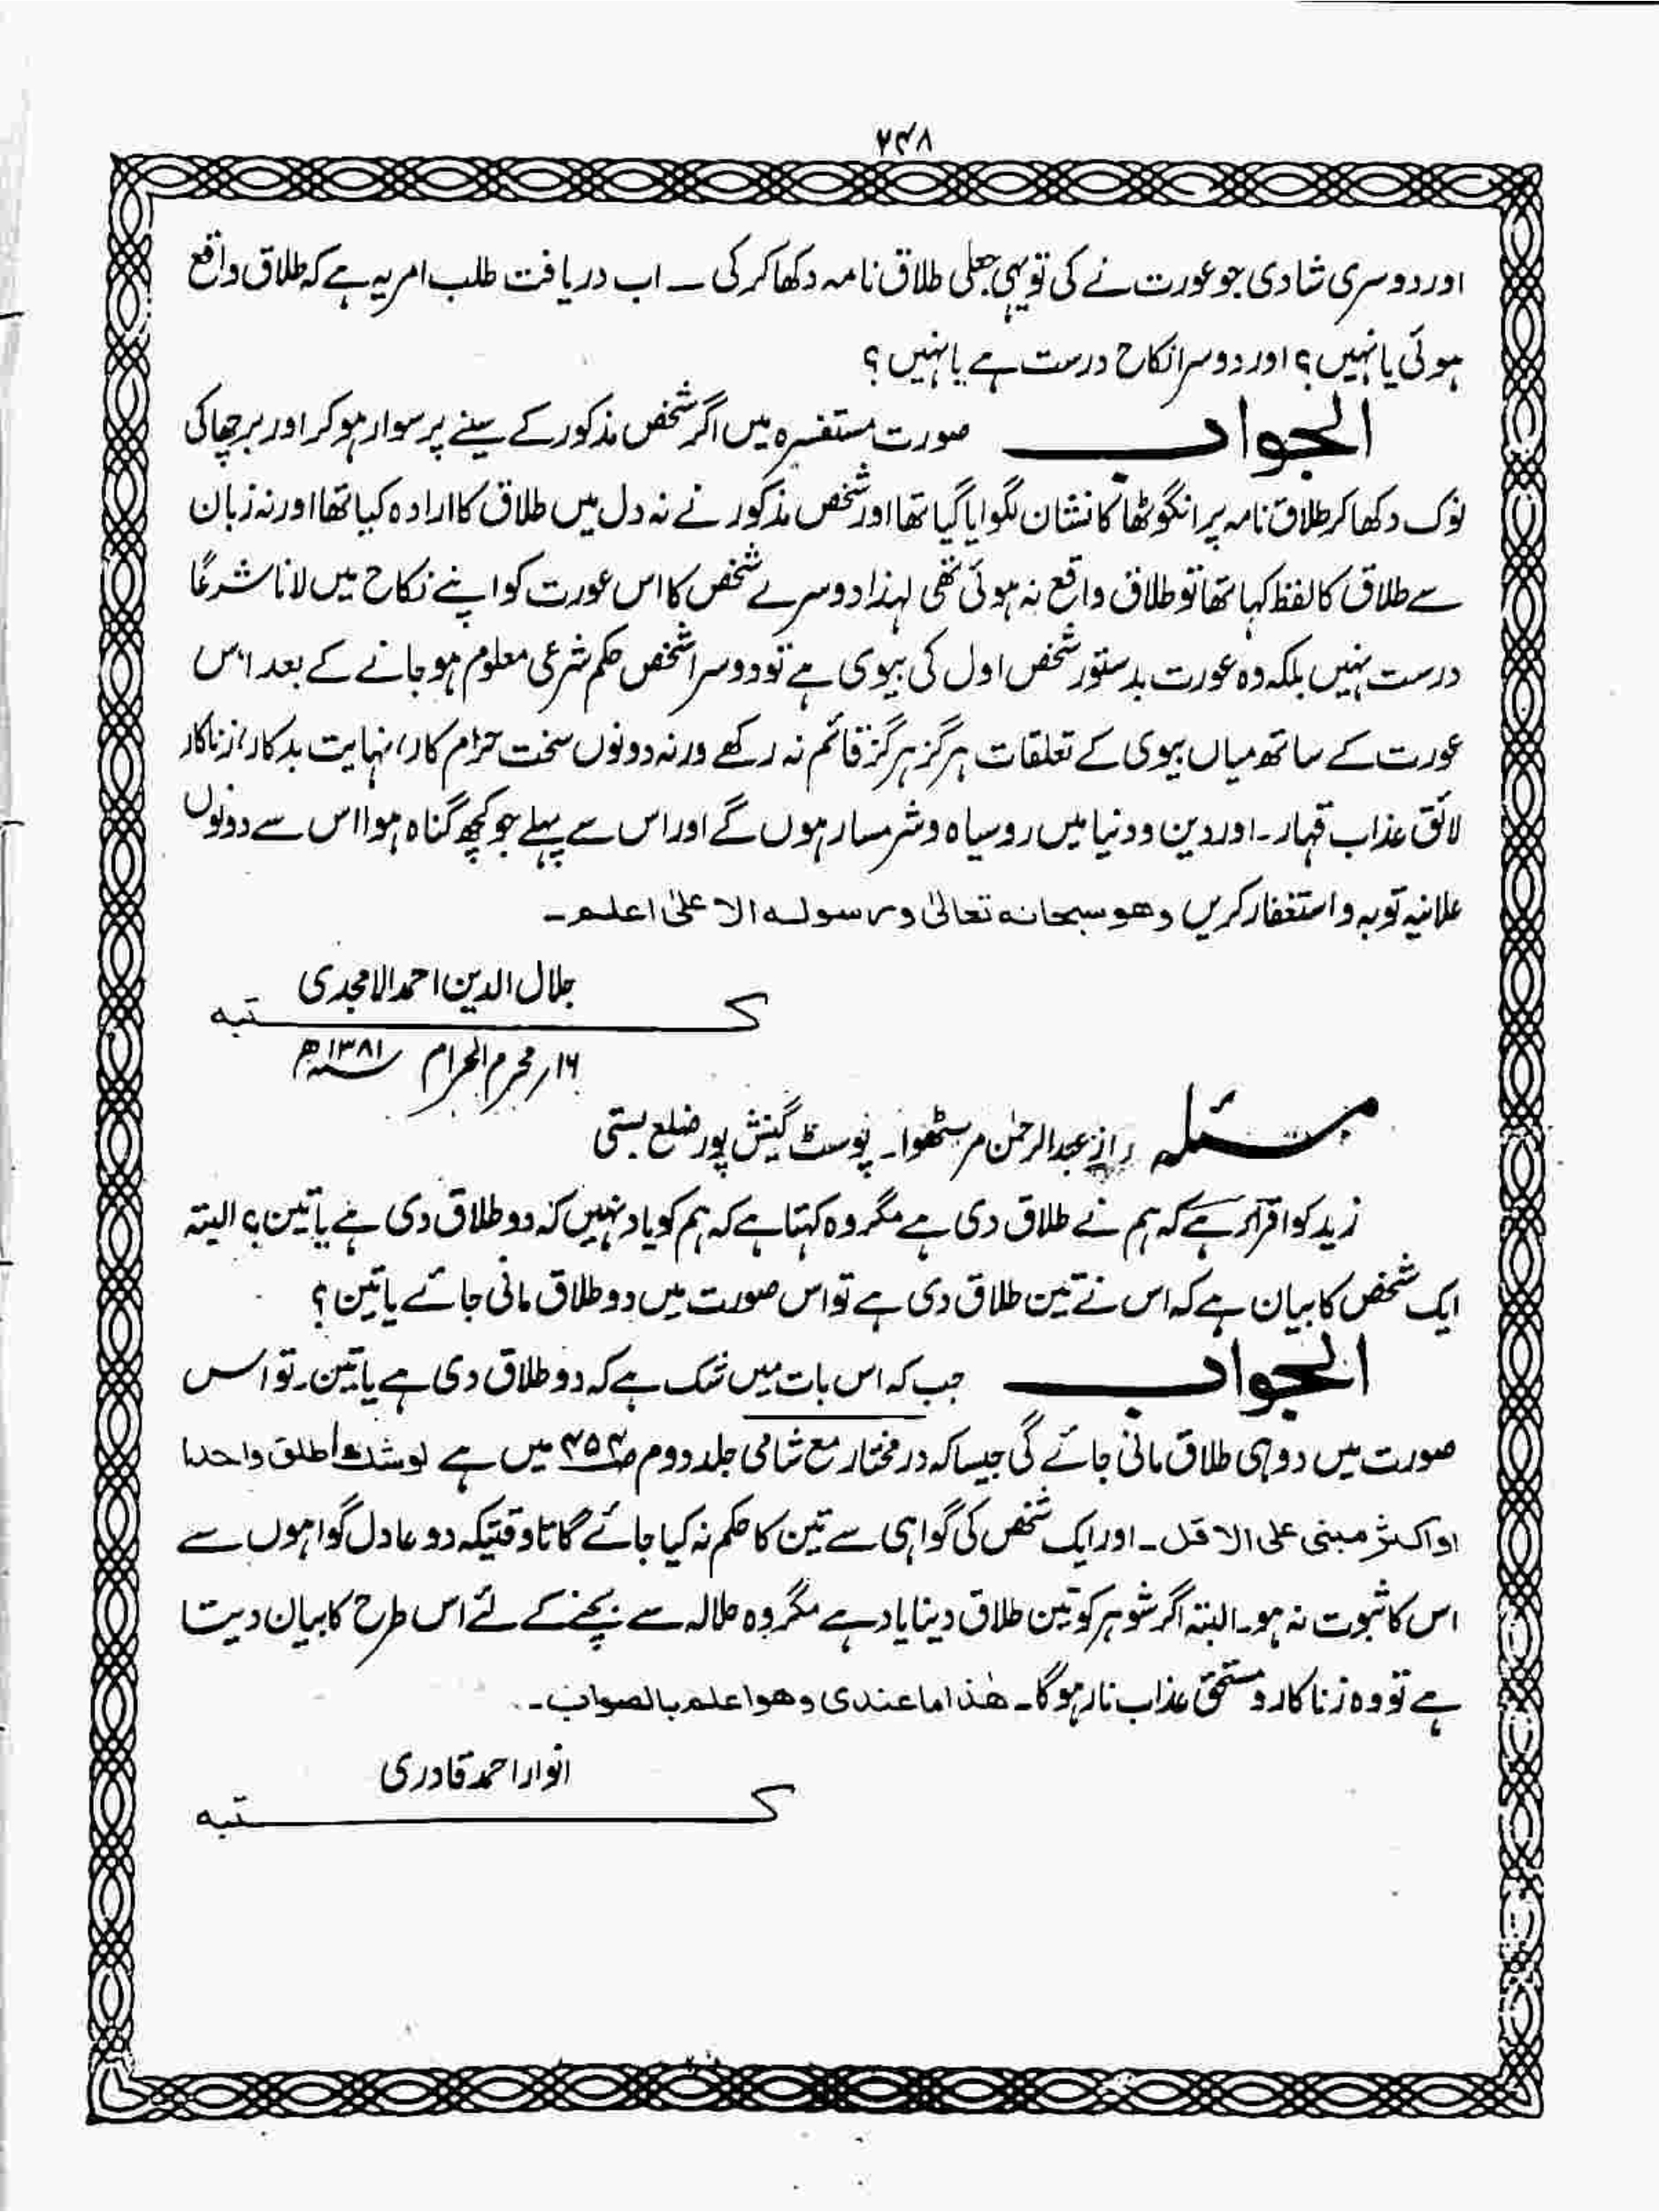 ۲۴۸
اور دوسری شادی جو عورت نے کی تو یہی جعلی طلاق نامہ دکھا کر کی ــ اب دریافت طلب امر یہ ہے کہ طلاق واقع
ہوئی یا نہیں؟ اور دوسرا نکاح درست ہے یا نہیں؟
الجواب صورت مستفسرہ میں اگر شخص مذکور کے سینے پر سوار ہو کر اور برچھا کی
نوک دکھا کر طلاق نامہ پر انگوٹھا کا نشان لگوایا گیا تھا اور شخص مذکور نے نہ دل میں طلاق کا ارادہ کیا تھا اور نہ زبان
سے طلاق کا لفظ کہا تھا تو طلاق واقع نہ ہوئی تھی لہذا دوسرے شخص کا اس عورت کو اپنے نکاح میں لانا شرعًا
درست نہیں بلکہ وہ عورت بدستور شخص اول کی بیوی ہے تو دوسرا شخص حکم شرعی معلوم ہو جانے کے بعد اس
عورت کے ساتھ میاں بیوی کے تعلقات ہرگز ہرگز قائم نہ رکھے ورنہ دونوں سخت حرام کار، نہایت بدکار، زناکار
لائق عذاب قہار۔ اور دین و دنیا میں روسیاہ و شرمسار ہوں گے اور اس سے پہلے جو کچھ گناہ ہوا اس سے دونوں
علانیہ توبہ و استغفار کریں وهو سبحانه تعالیٰ ورسوله الاعلیٰ اعلم۔
جلال الدین احمد الامجدی
کتبه
۱۶؍ محرم الحرام ۱۳۸۱ھ
مسئلہ ؍ از عبد الرحمٰن مرسٹھوا۔ پوسٹ گنیش پور ضلع بستی
زید کو اقرار ہے کہ ہم نے طلاق دی ہے مگر وہ کہتا ہے کہ ہم کو یاد نہیں کہ دو طلاق دی ہے یا تین؟ البتہ
ایک شخص کا بیان ہے کہ اس نے تین طلاق دی ہے تو اس صورت میں دو طلاق مانی جائے یا تین؟
الجواب جب کہ اس بات میں شک ہے کہ دو طلاق دی ہے یا تین۔ تو اس
صورت میں دو ہی طلاق مانی جائے گی جیسا کہ در مختار مع شامی جلد دوم ص۴۵۴ میں ہے لو شك اطلق واحدا
او اکثر مبنی علی الاقل۔ اور ایک شخص کی گواہی سے تین کا حکم نہ کیا جائے گا تاوقتیکہ دو عادل گواہوں سے
اس کا ثبوت نہ ہو۔ البتہ اگر شوہر کو تین طلاق دینا یاد ہے مگر وہ حلالہ سے بچنے کے لئے اس طرح کا بیان دیتا
ہے تو وہ زناکار و مستحق عذاب نار ہوگا۔ هٰذا ما عندی وهو اعلم بالصواب۔
انوار احمد قادری
کتبه